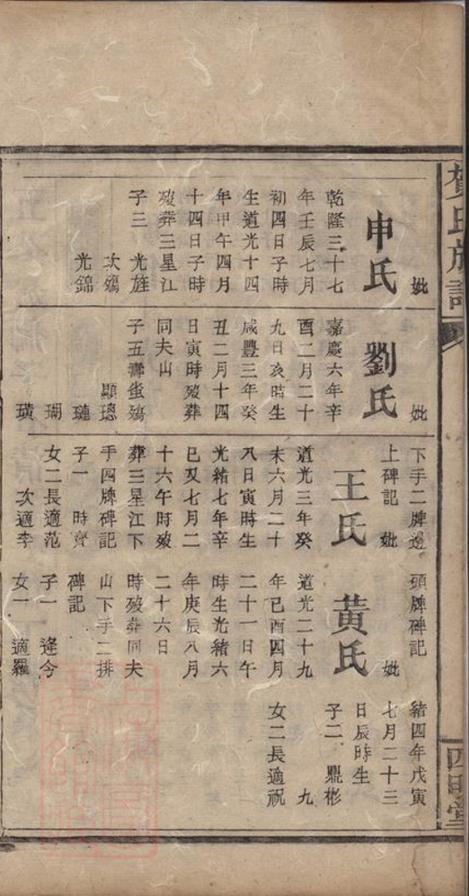 賀氏族譜
四明堂
妣
申氏
乾隆三十七
年壬辰七月
初四日子時
生道光十四
年甲午四月
十四日子時
歿葬三星江
子三 光旌
次殤
光錦
妣
劉氏
嘉慶六年辛
酉二月二十
九日亥時生
咸豐三年癸
丑二月十四
日寅時歿葬
同夫山
子五壽蚩殤
顯璁
璉
瑚
璜
下手二牌邊
上碑記 妣
王氏
道光三年癸
未六月二十
八日寅時生
光緒七年辛
巳又七月二
十六午時歿
葬三星江下
手四牌碑記
子一 時齊
女二長適范
次適李
頭牌碑記
妣
黃氏
道光二十九
年己酉四月
二十一日午
時生光緒六
年庚辰八月
二十六日
時歿葬同夫
山下手二排
碑記
子一 逢今
女一 適羅
緒四年戊寅
七月二十三
日辰時生
子二 鼎彬
九
女二長適祝